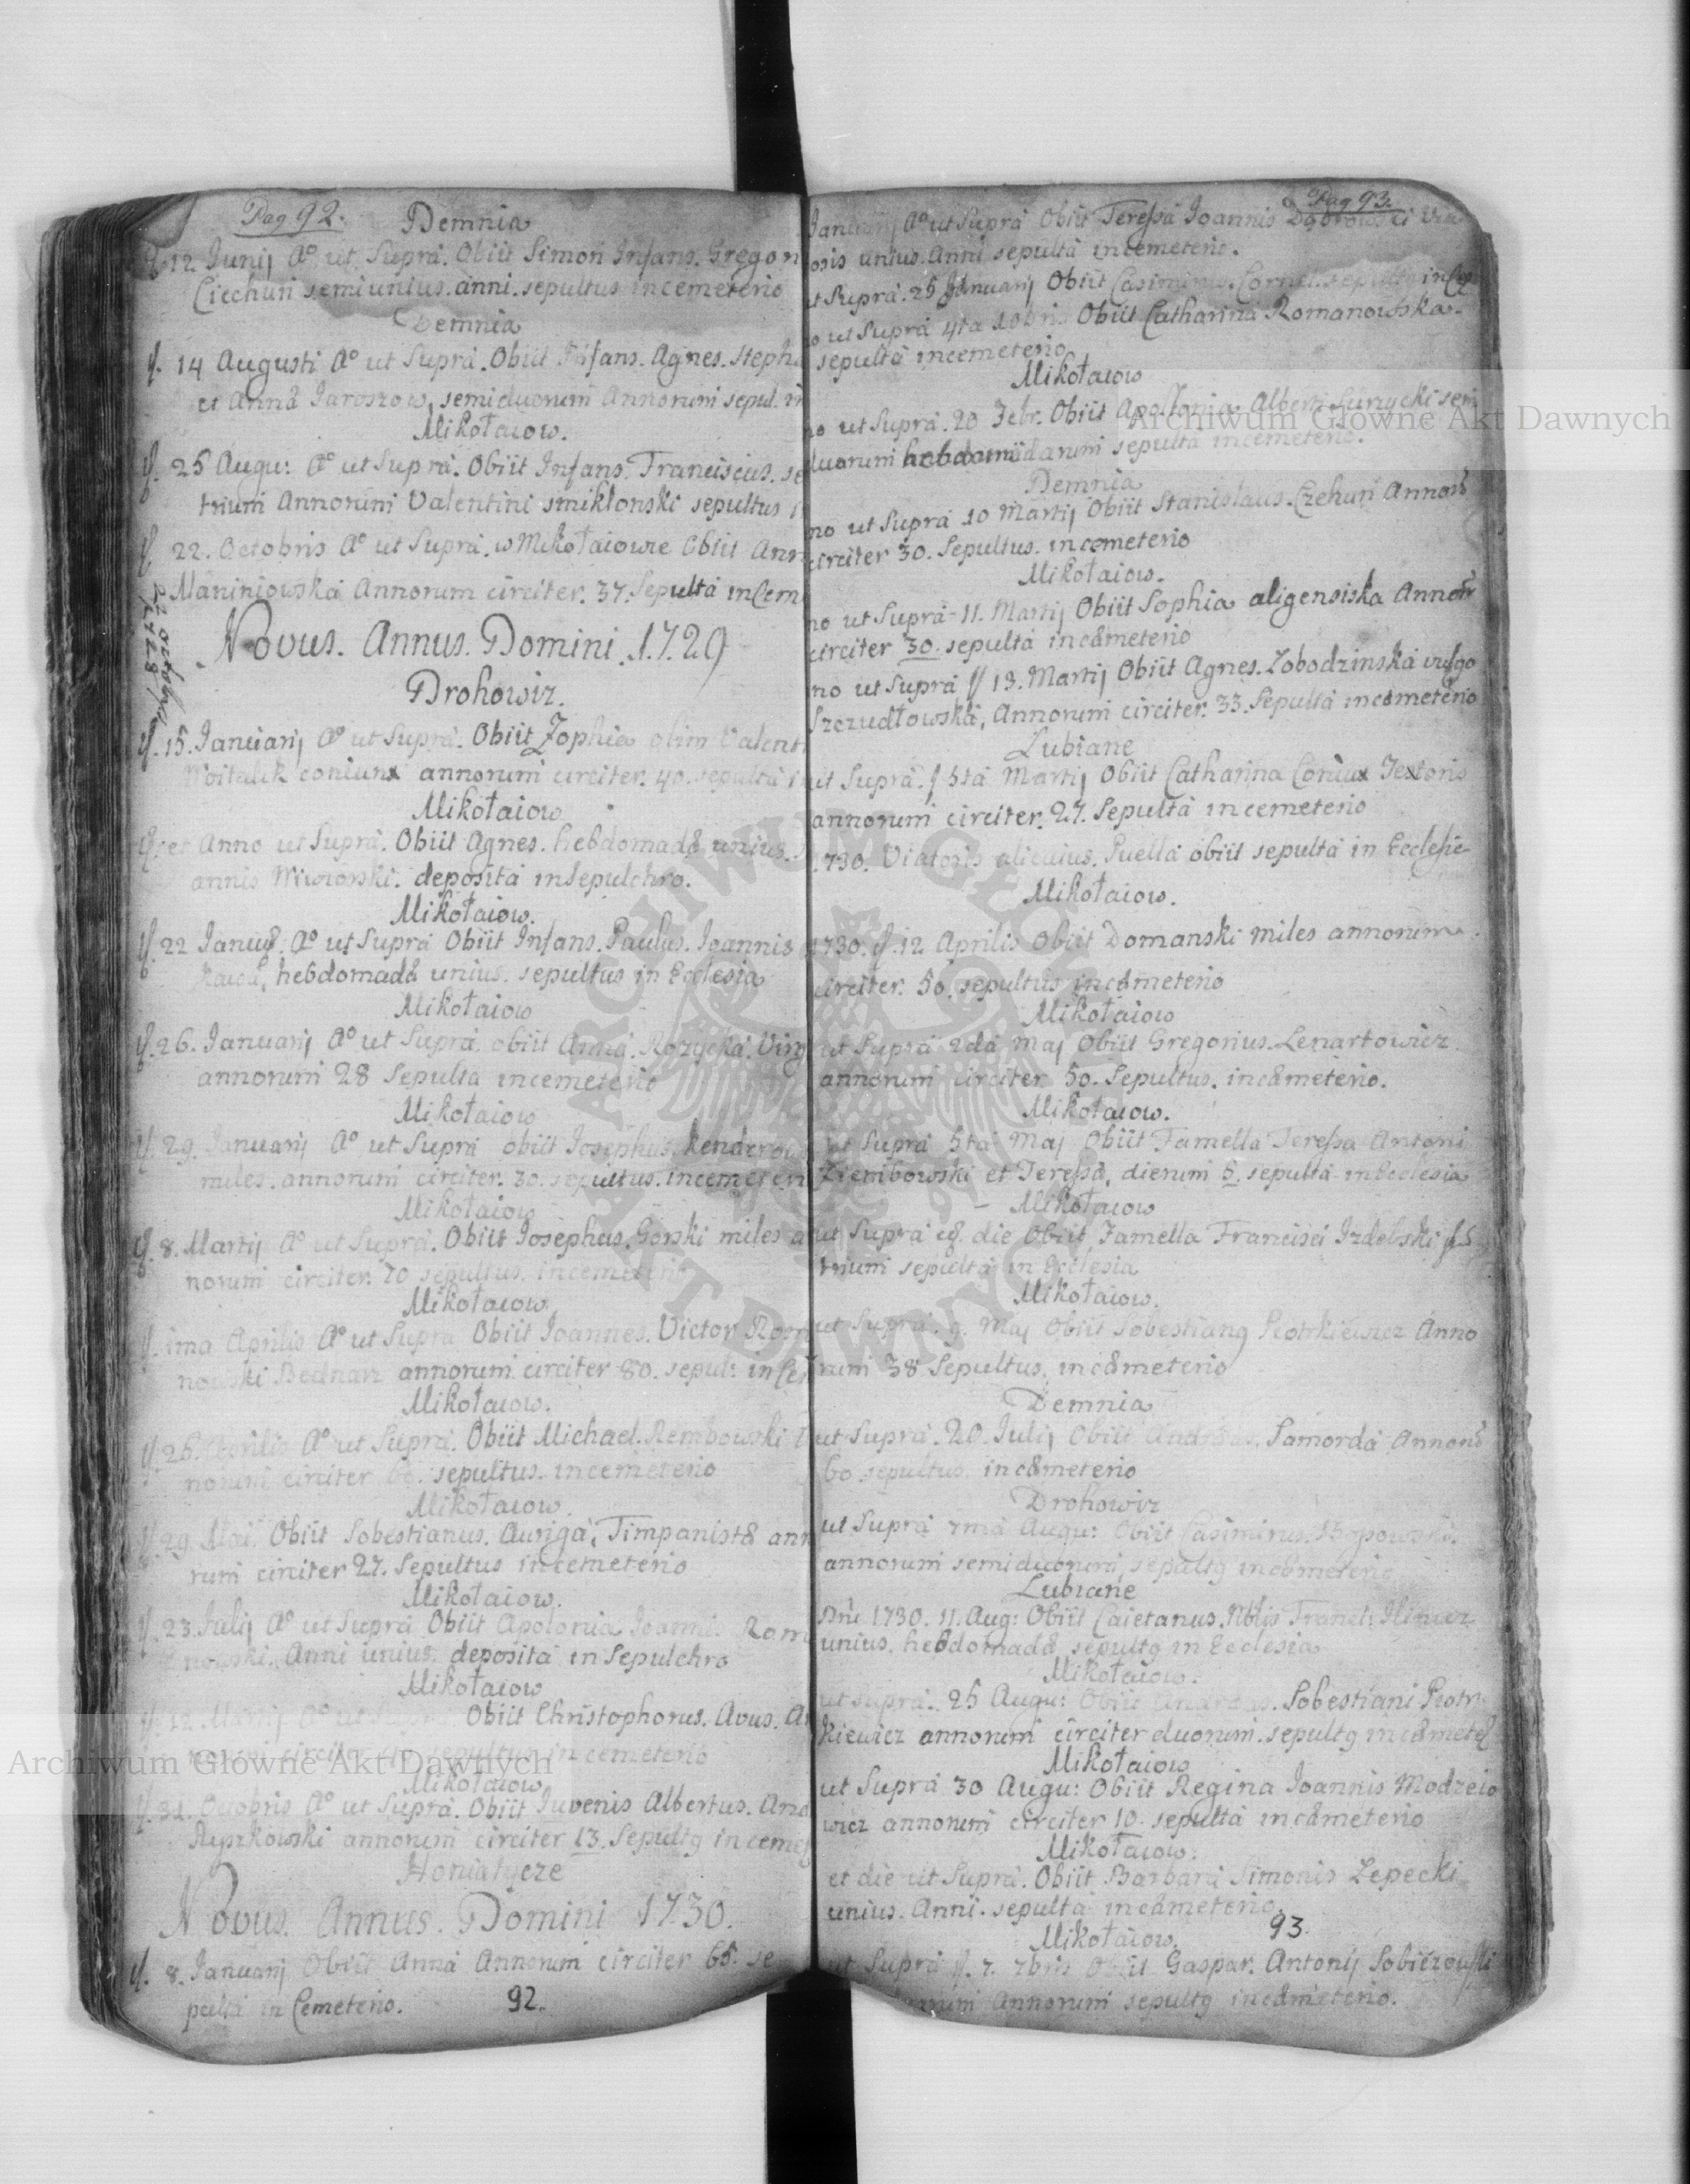 Pag 92.
Demnia
12 Junij A° ut Supra. Obiit Simon Infans. Gregori
Ciechuri semiunius. anni. sepultus in cemeterio
Demnia
14 Augusti A° ut Supra. Obiit Infans. Agnes. Steph
et Anna Jaroszow, semiduorum Annorum sepul. in
Mikołaiow.
25 Augu: A° ut Supra. Obiit Infans. Franciscus. se
trium Annorum Valentini smiklonski sepultus
22. Octobris A° ut Supra. w Mikołaiowie Obiit Ann
Maniniowska Annorum circiter. 37. Sepulta in Cem
22 octobris
1728
Novus. Annus. Domini. 1729
Drohowiz.
15. Januarij A° ut Supra. Obiit Zophia olim Valent
Woitalik coniunx annorum circiter. 40. sepulta
Mikołaiow
et Anno ut Supra. Obiit Agnes. hebdomadæ unius.
annis deposita in Sepulchro.
Mikołaiow.
22 A° ut Supra Obiit Infans. Paulus. Joannis
hebdomadæ unius. sepultus in Ecclesia
Mikołaiow
26. Januarij A° ut Supra. obiit Anna. Rozycka. Virg
annorum 28 Sepulta in cemeterio
Mikołaiow
29. Januarij A° ut Supra obiit Josephus.
miles. annorum circiter. 30. sepultus. in cemeteri
Mikołaiow
8. Martij A° ut Supra. Obiit Josephus. Gorski miles a
norum circiter. 70 sepultus. in cemeterio
Mikołaiow.
ima Aprilis A° ut Supra Obiit Joannes. Victor
nowski Bednarz annorum circiter 80. sepul: in Ce
Mikołaiow.
Aprilis A° ut Supra. Obiit Michael. Rembowski
norum circiter sepultus. in cemeterio
Mikołaiow.
29 Mai. Obiit Sobestianus. Auriga, Timpanistæ ann
rum circiter 27. Sepultus in cemeterio
Mikołaiow.
23 Julij A° ut Supra Obiit Apolonia Joannis Rom
nowski. Anni unius. deposita in Sepulchro
Mikołaiow
Obiit Christophorus. Avus.
sepultus in cemeterio
Mikołaiow
A° ut Supra. Obiit Iuvenis Albertus.
Ryszkowski annorum circiter 13. Sepultq in ceme
Honiatycze
Novus. Annus. Domini 1730.
8. Januarij Obiit Anna Annorum circiter 65. se
pulta in Cemeterio.
92.
Pag 93.
Januarij A° ut Supra Obiit Teressa Joannis Dąbrowski
unius. Anni sepulta in cemeterio.
ut Supra. 25 Januarij Obiit Casimirus. Cornel. sepultq in
ut Supra 4ta 10bris Obiit Catharina Romanowska.
sepulta in cemeterio
Mikołaiow
no ut Supra. 20 Febr. Obiit Apollonia Alberti semi
duorum hebdomadarum sepulta in cemeterio.
Demnia
no ut Supra 10 Martij Obiit Stanislaus. Czehuri Annorũ
circiter 30. Sepultus. in cemeterio
Mikołaiow.
no ut Supra 11. Martij Obiit Sophia aligensiska Annorũ
circiter 30. sepulta in cæmeterio
no ut Supra 13. Martij Obiit Agnes. Zobodzinska vulgo
Szczudłowska, Annorum circiter. 33. Sepulta in cæmeterio
Lubiane
ut Supra. 5ta Martij Obiit Catharina Coniux Textoris
annorum circiter. 27. Sepulta in cemeterio
1730. Viatoris alicuius. Puella obiit sepulta in Ecclesie
Mikołaiow.
1730. 12 Aprilis Obiit Domanski miles annorum
circiter. 50. sepultus in cæmeterio
Mikołaiow
ut Supra 2da Maj Obiit Gregorius. Lenartowicz
annorum circiter 50. Sepultus. in cæmeterio.
Mikołaiow.
ut Supra 5ta Maj Obiit Famella Teressa Antoni
Ziembowski et Teressa, dierum 5. sepulta in Ecclesia
Mikołaiow
ut Supra eq. die Obiit Famella Francisci Izdebski
trium sepulta in Ecclesia
Mikołaiow.
ut Supra. 9. Maj Obiit Sobestianq Piotrkiewicz Anno
rum 38 Sepultus. in cæmeterio
Demnia
ut Supra. 20. Julij Obiit Andreas. Samorda Annorũ
60 sepultus. in cæmeterio
Drohowiz
ut Supra 7ma Augu: Obiit Casimirus.
annorum semiduorum, sepultq in cæmeterio
Lubiane
1730. 11. Aug: Obiit Caietanus.
unius. hebdomadæ sepultq in Ecclesia
Mikołaiow.
ut supra. 25 Augu: Obiit Andreas. Sobestiani Piotr
kiewicz annorum circiter duorum. sepultq in cæmete
Mikołaiow
ut Supra 30 Augu: Obiit Regina Joannis Modzeio
wicz annorum circiter 10. sepulta in cæmeterio
Mikołaiow.
et die ut Supra. Obiit Barbara Simonis Lepecki
unius. Anni. sepulta in cæmeterio.
93.
Mikołaiow.
ut Supra 7. 7bris Obiit Gaspar. Antonij
Annorum sepultq in cæmeterio.
Archiwum Główne Akt Dawnych
Archiwum Główne Akt Dawnych
ARCHIWUM GŁÓWNE AKT DAWNYCH